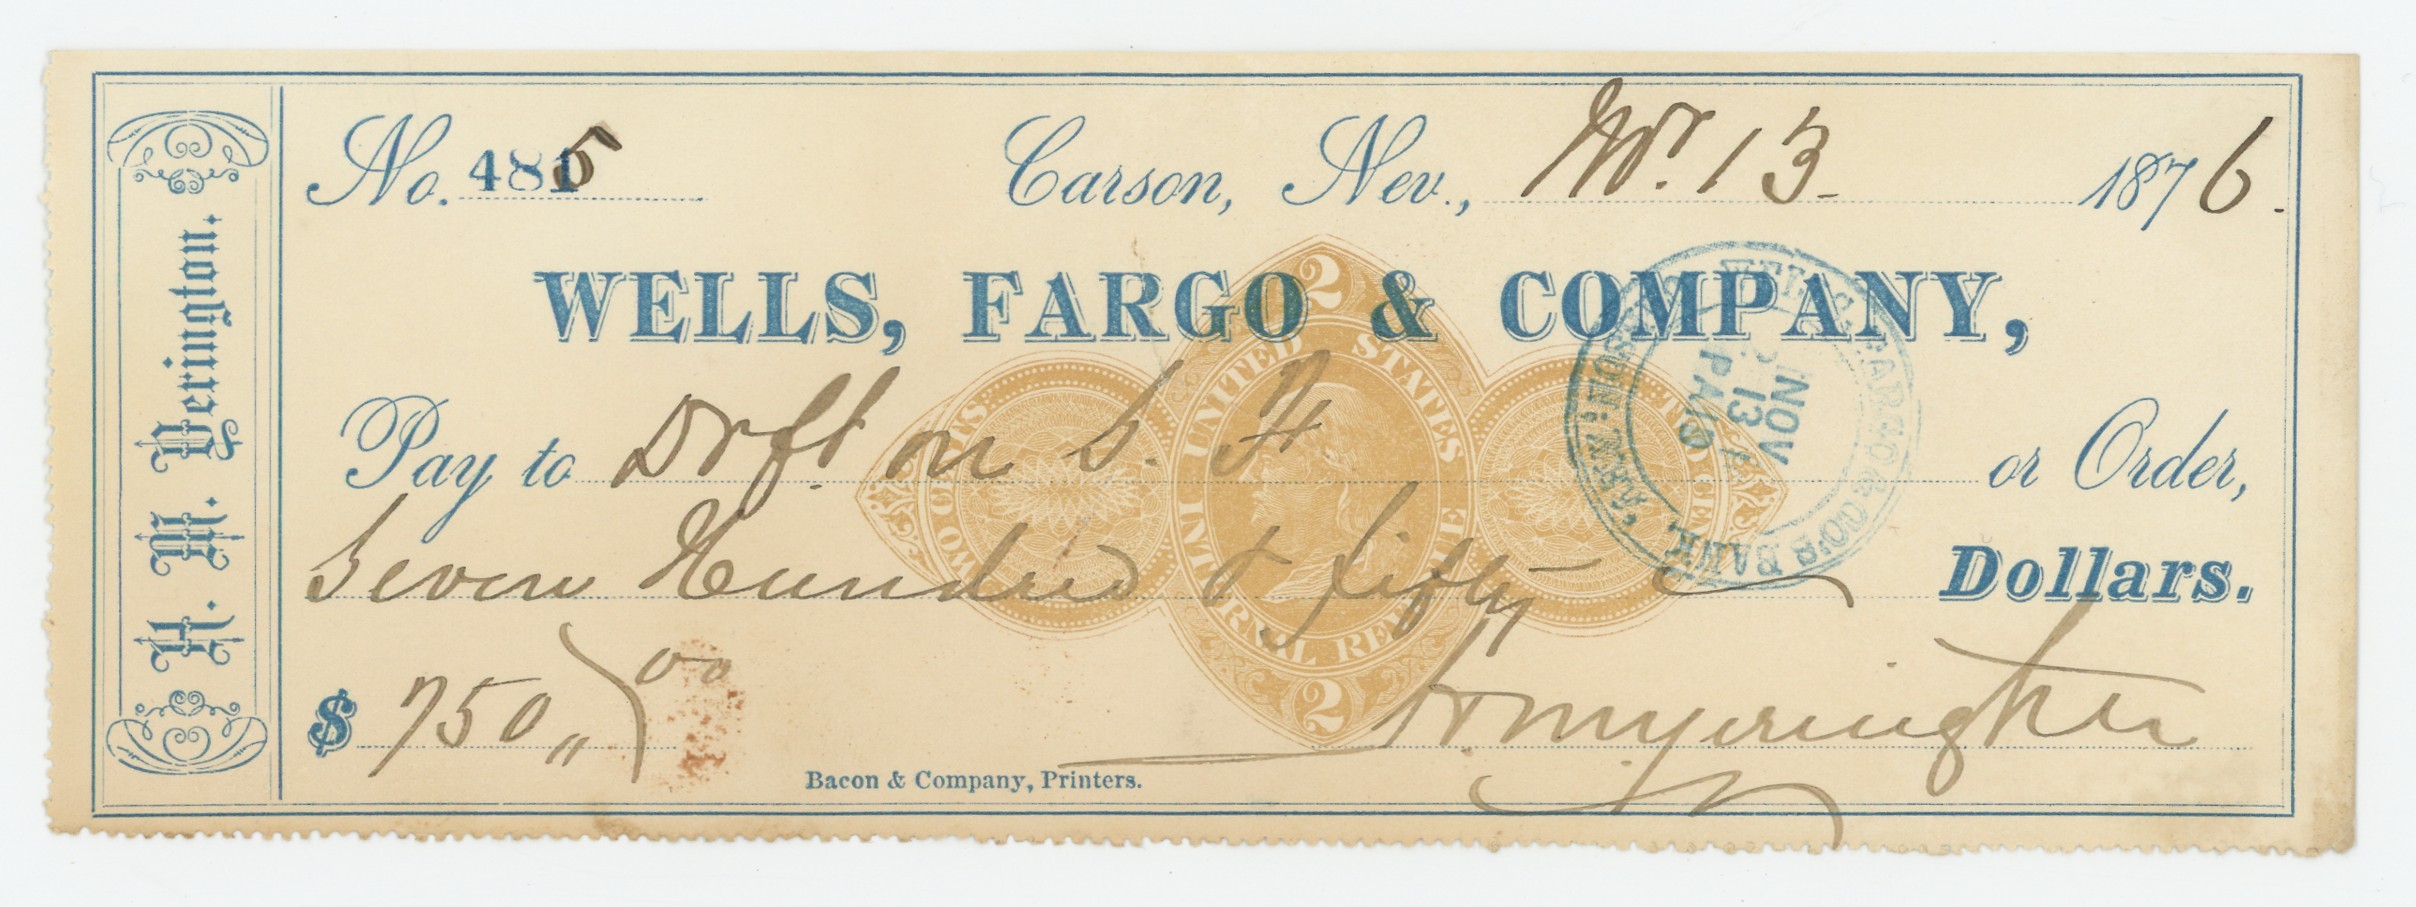 H. M. Yerington.
No. 4815 Carson, Nev., Nov. 13 1876.
WELLS, FARGO & COMPANY,
Pay to Drft. on S. F. or Order,
Seven Hundred & fifty Dollars.
$ 750,, 00
H M Yerington
Bacon & Company, Printers.
2
UNITED STATES
INTERNAL REVENUE
TWO CENTS
TWO CENTS
2
WELLS FARGO & CO'S BANK. CARSON, NEV.
NOV
13
PAID